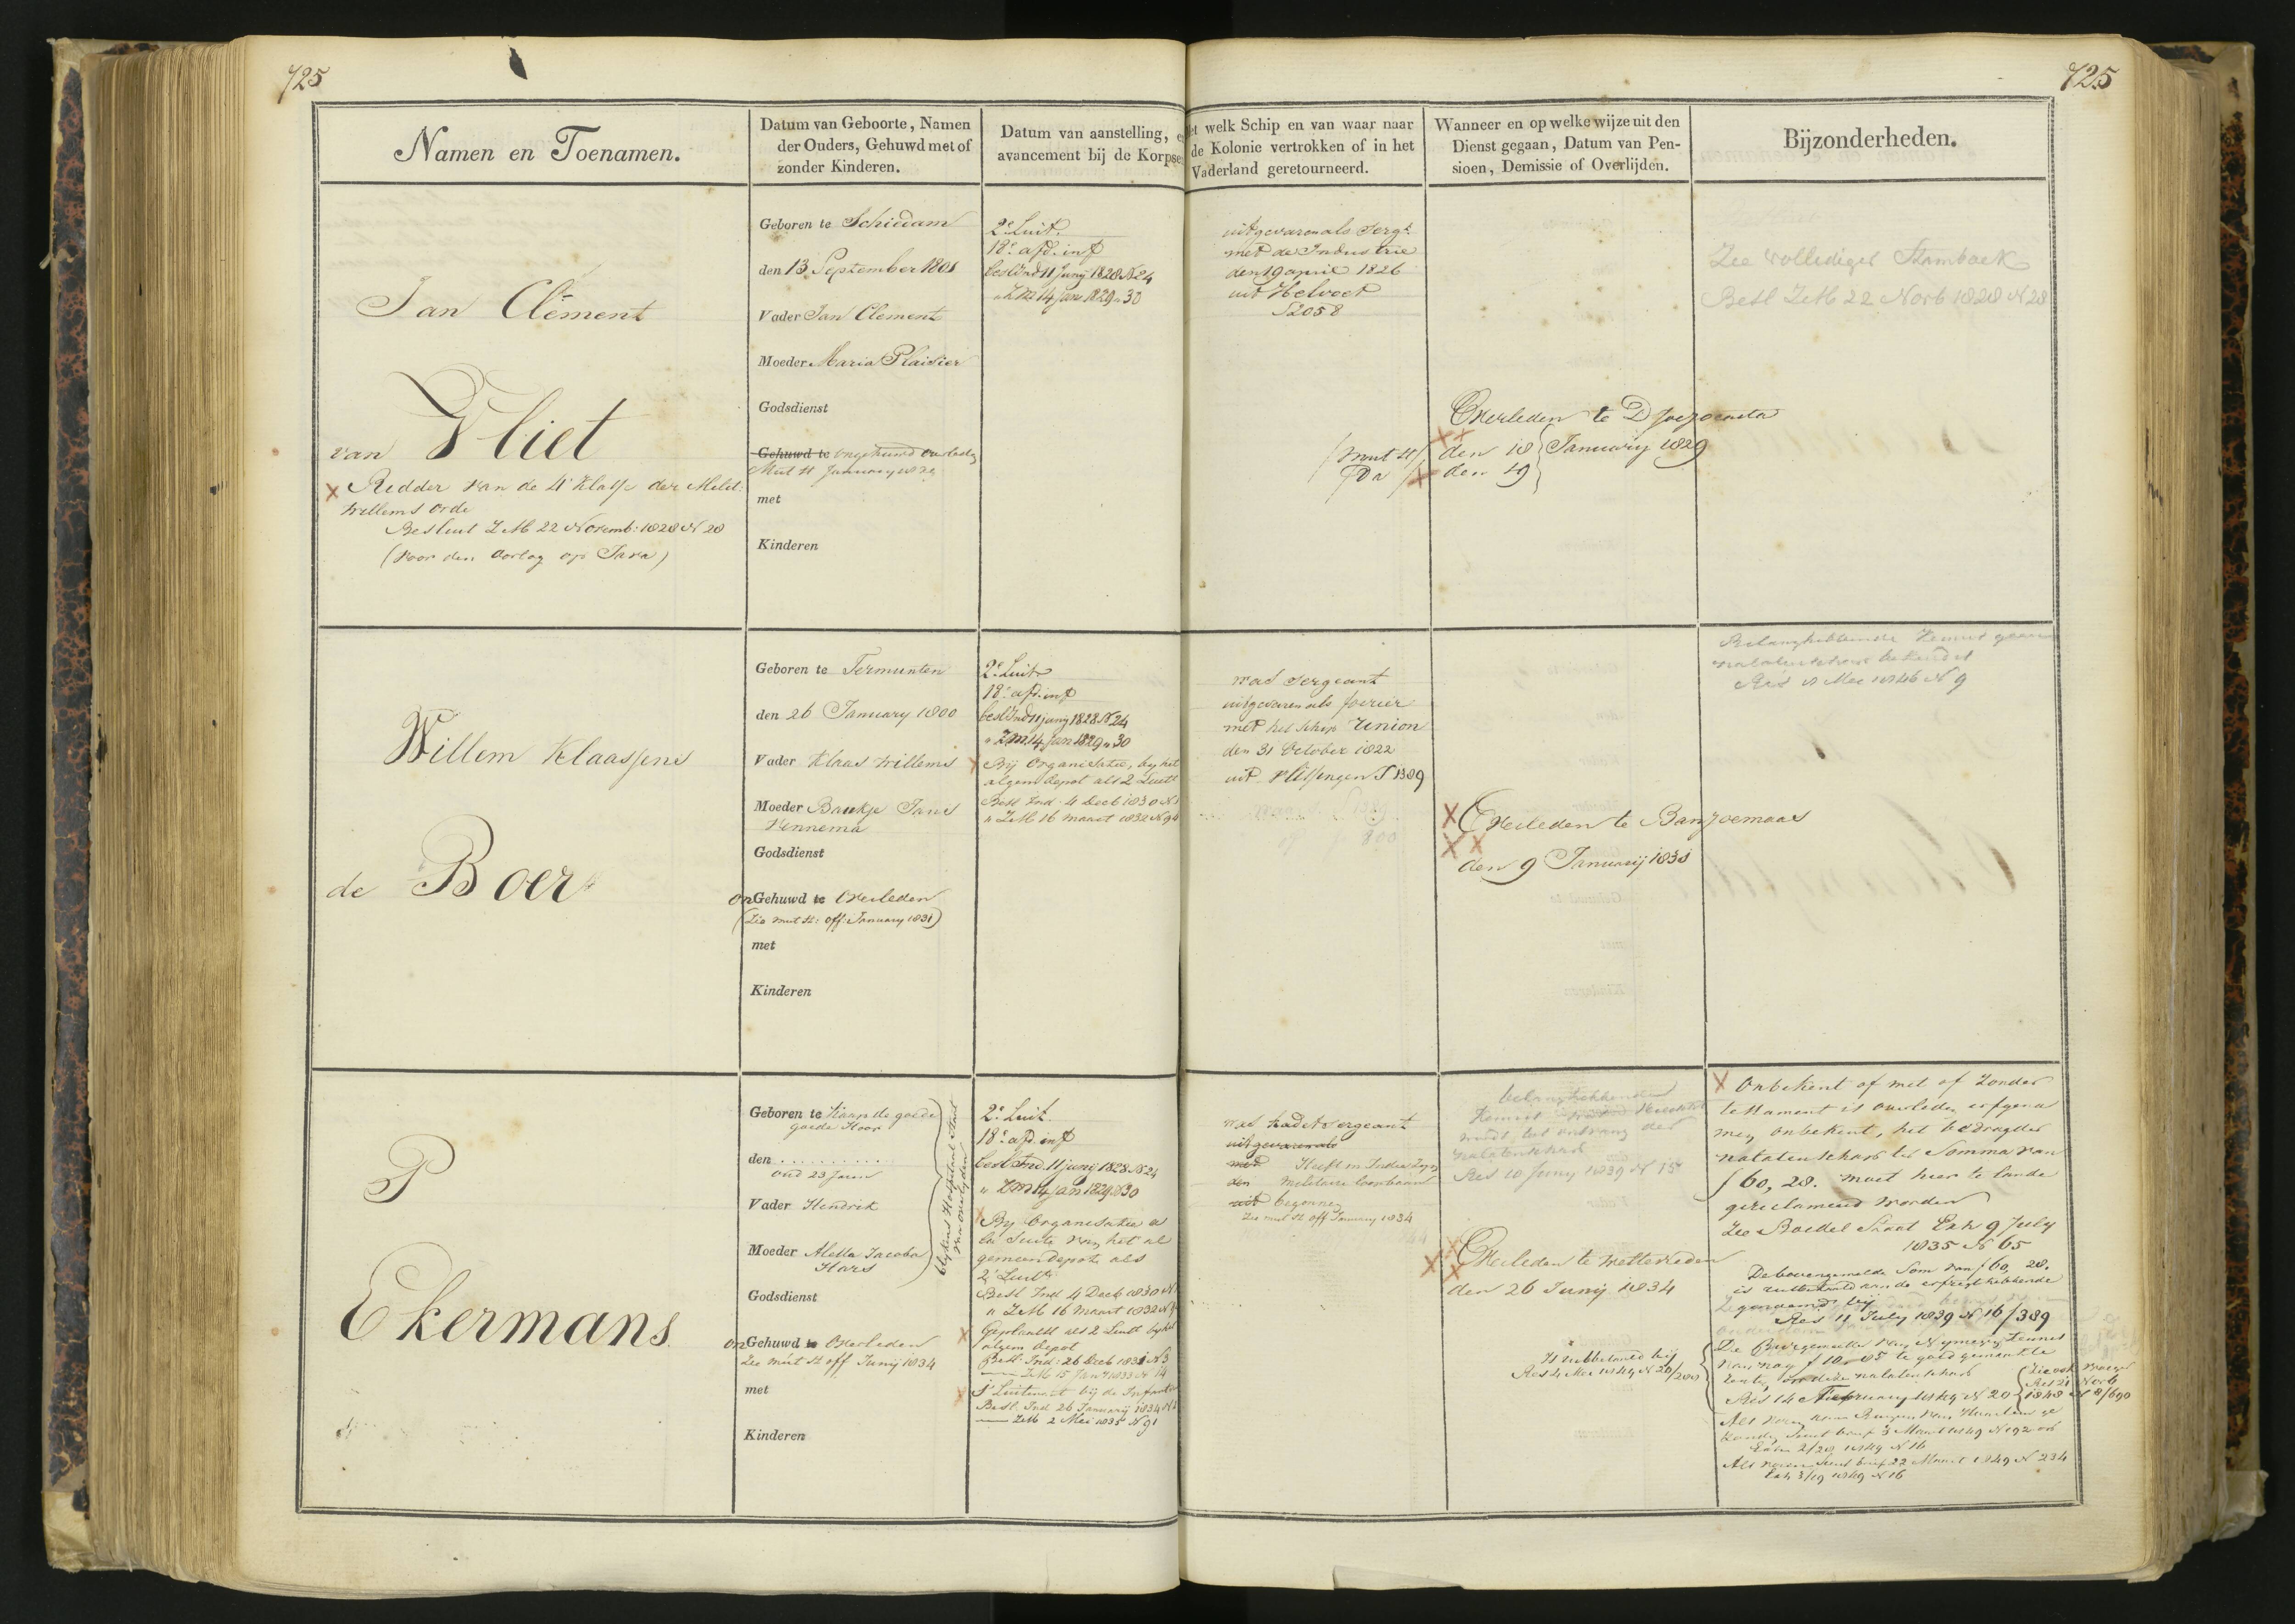 725
725
Namen en Toenamen.
Datum van Geboorte, Namen
der Ouders, Gehuwd met of
zonder Kinderen.
Datum van aanstelling, en
avancement bij de Korpsen
Met welk Schip en van waar naar
de Kolonie vertrokken of in het
Vaderland geretourneerd.
Wanneer en op welke wijze uit den
Dienst gegaan, Datum van Pen-
sioen, Demissie of Overlijden.
Bijzonderheden.
Jan Clement
van Vliet
Ridder van de 4e Klasse der Milit:
Willems orde
Besluit ZM 22 Novemb: 1828 N 28
(voor den oorlog op Java)
Geboren te Schiedam
den 13 September 1801
Vader Jan Clement
Moeder Maria Plaisier
Godsdienst
Gehuwd te ongehuwd overleden
Mut st January 1829
met
Kinderen
2e Luit.
18e afd. inf
besl Ind 11 Juny 1828 N 24
" ZM 14 Jan 1829 " 30
uitgevaren als Sergt
met de Industrie
den 19 april 1826
uit Helvoet
S 2058
Overleden te Djocjocarta
(Mut st) den 18 } January 1829
(Da) den 19 }
Zie vollediger Stamboek
Besl ZM 22 Novb 1828 N 28
Willem Klaassens
de Boer
Geboren te Termunten
den 26 January 1800
Vader Klaas Willems
Moeder Baukje Jans
Vennema
Godsdienst
onGehuwd te Overleden
(Zie mut st: off: January 1831)
met
Kinderen
2e Luit
18e afd. inf
besl Ind 11 juny 1828 N 24
" ZM 14 Jan 1829 " 30
Bij Organisatie, by het
algem depot als 2 Luitt
Besl Ind 4 Decb 1830 N 1
" ZM 16 maart 1832 N 94
was sergeant
uitgevaren als fourier
met het schip Union
den 31 October 1822
uit Vlissingen S 1389
Overleden te Banjoemaas
den 9 Januarij 1831
Belanghebbende
nalatenschap
Res 8 Mei 1846 N 9
P
Ekermans
Geboren te Kaap de goede
goede Hoop
den . . . . . . . . . .
oud 23 Jaren
Vader Hendrik
Moeder Aletta Jacoba
Hars
blijkens Hospitaal Staat
van overlyden
Godsdienst
onGehuwd te Overleden
Zie mut st off Junij 1834
met
Kinderen
2e Luit.
18e afd. inf
besl Ind 11 junij 1828 N 24
" ZM 14 Jan 1829 N 30
By Organisatie a
la Suite van het al
gemeen depot als
2e Luitt
Besl Ind 4 Decb 1830 N 1
" ZM 16 Maart 1832 N 94
Geplaatst als 2 Luitt by het
algem depot
Besl: Ind: 26 Decb 1831 N 3
ZM 15 Jany 1833 N 14
1e Luitenant bij de Infanterie
Besl. Ind 26 Januarij 1834 N 1
ZM 2 Mei 1835 N 91
was kadet sergeant
uitgevaren als
met Heeft in Indie zyn
den militaire loopbaan
uit begonnen
Zie mut st off January 1834
belanghebbenden
nalatenschap
Res 10 Juny 1839 N 15
Overleden te Weltevreden
den 26 Junij 1834
Is uitbetaald bij
Res 4 Mei 1849 N 20/200
Onbekent of met of zonder
testament is overleden, erfgena
men onbekent, het bedrag der
nalatenschap ter Somma van
f 60,28. moet hier te lande
gereclameerd worden
Zie Boedel Staat Exh 9 July
1835 N 65
De bovengemelde Som van f 60, 28.
is uitbetaald aan de erfregthebbende
genaamd bij
Res 11 July 1839 N 16/389
De Burgemeester van Nymegen
van nog f 10-05 te goed gemaakte
renten dezer nalatenschap
Res 14 February 1849 N 20
{Zie ook vroeger
Res 21 Novb
1848 N 8/690
3 Maart 1849 N 192
Exh 2/20 1849 N 16
brief 22 Maart 1849 N 234
Exh 3/19 1849 N 16